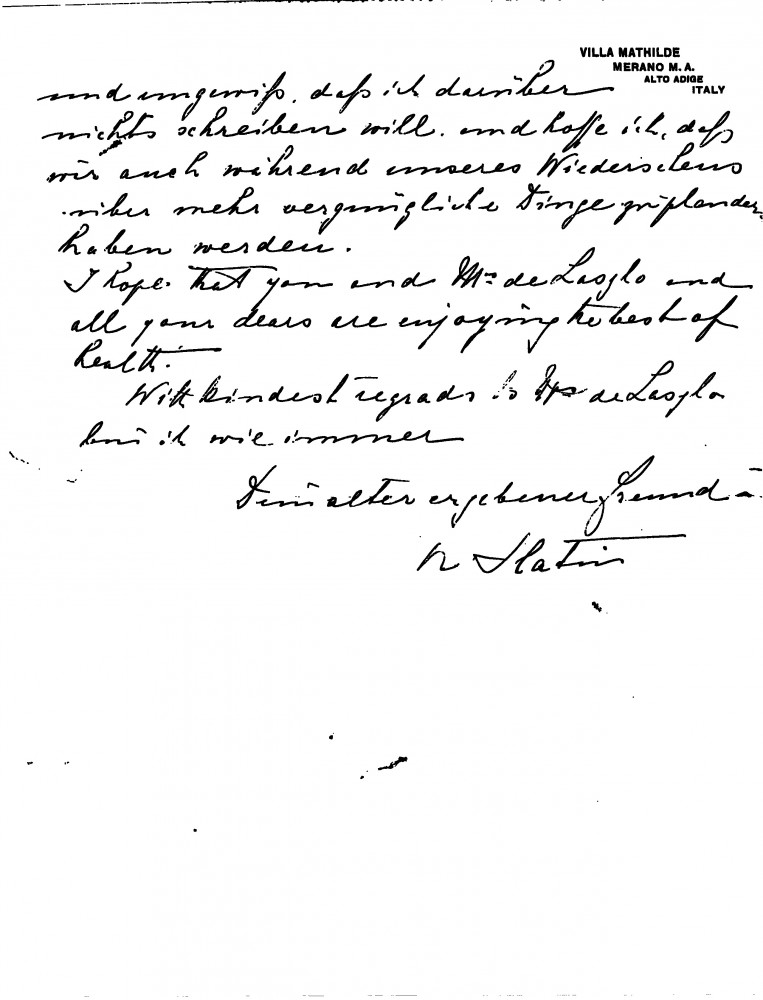 VILLA MATHILDE
MERANO M. A.
ALTO ADIGE
ITALY
und ungewiß, daß ich darüber
nichts schreiben will. und hoffe ich, daß
wir auch während unseres Wiedersehens
über mehr vergnügliche Dinge zu plaudern
haben werden.
I hope that you and Mrs de Laszlo and
all your dears are enjoying the best of
health.
With kindest regrads to Mrs de Laszlo
bin ich wie immer
Dein alter ergebener Freund
R Slatin